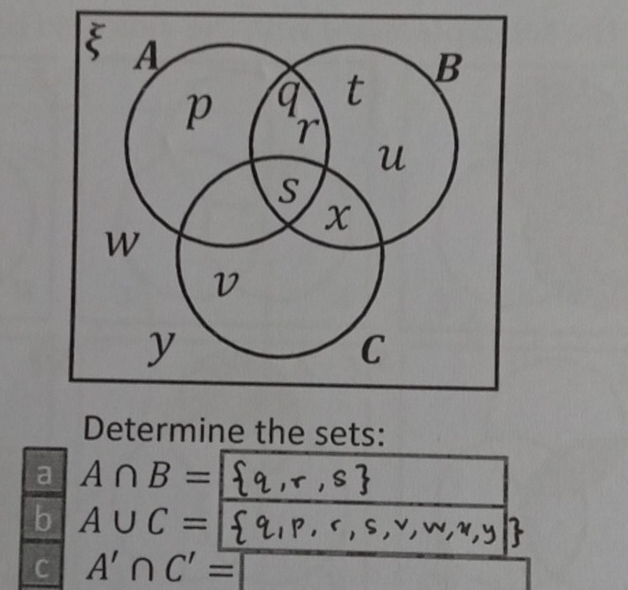 ξ A B
p q t
r u
s x
w
v
y C
Determine the sets:
a A ∩ B = {q, r, s}
b A ∪ C = {q, p, r, s, v, w, x, y}
c A′ ∩ C′ =